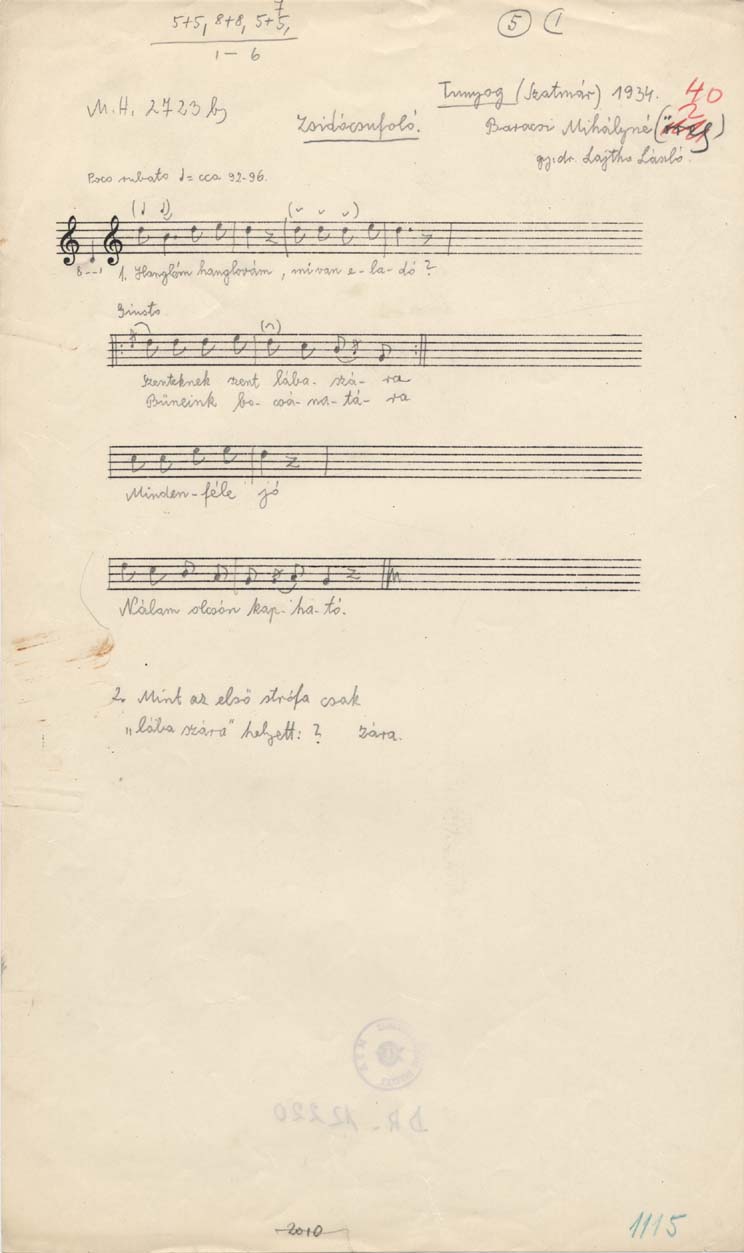 7
5+5, 8+8, 5+5,
1 – 6
5 1
M.H. 2723 b)
Tunyog (Szatmár) 1934.
40
2
Zsidócsufoló.
Baracsi Mihályné
gy: dr. Lajtha László.
Poco rubato ♩= cca 92-96.
8--1
1. Hanglóm hanglovám, mi van e-la-dó?
Giusto
Szenteknek szent lába-szá-ra
Bűneink bo-csá-na-tá-ra
Minden-féle jó
Nálam olcsón kap-ha-tó.
2. Mint az első strófa csak
„lába szára" helyett: ? zára.
DR. 12220
2010
1115